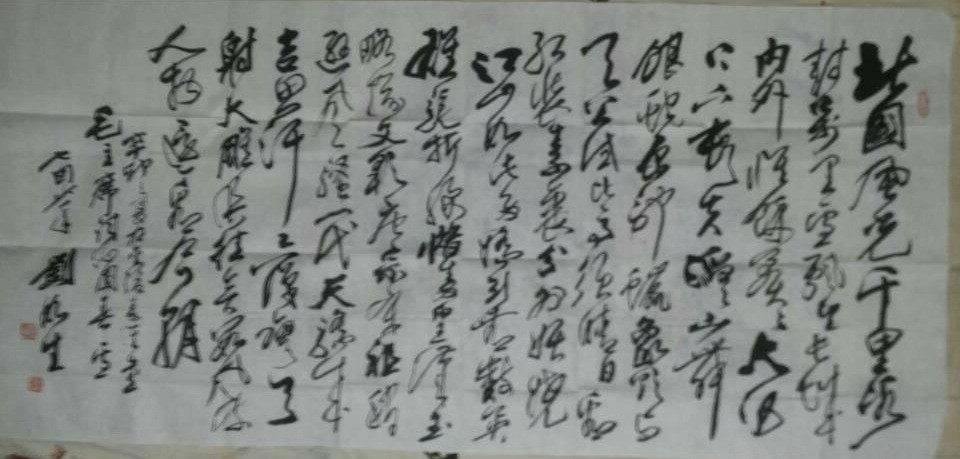 北国风光千里冰
封万里雪飘望长城
内外惟馀莽莽大河
上下顿失滔滔山舞
银蛇原驰蜡象欲与
天公试比高须晴日看
红装素裹分外妖娆
江山如此多娇引无数英
雄竞折腰惜秦皇汉武
略输文采唐宗宋祖稍
逊风骚一代天骄成
吉思汗只识弯弓
射大雕俱往矣数风流
人物还看今朝
毛主席词沁园春雪
劉
生